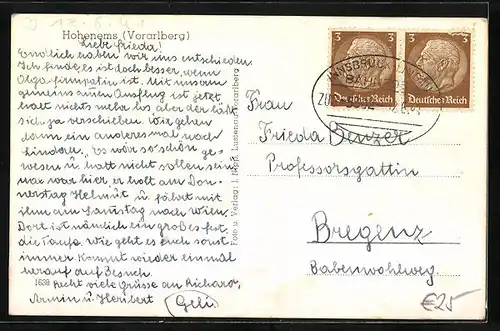 J 12. 8. 41
Hohenems (Vorarlberg)
Liebe Frieda!
Endlich haben wir uns entschieden
Ich finde, es ist doch besser, wenn
Olga sympathiv ist. Mit unserm
gemeins amen Ausflug ist jetzt
halt nichts mehr los aber der läßt
sich ja verschieben. Wir gehen
dann ein anderes mal nach
Lindau. Es wär so schön ge-
wesen u. hatt nicht sollen sein.
Max war hier er holt am Don-
nerstag Helmut u. fährt mit
ihm am Samstag nach Wien
Dort ist nämlich ein großes Fest,
die Taufe. Wie geht es euch sonst
immer Kommt wieder einmal
herauf auf Besuch.
Recht viele Grüsse an Richard,
Armin u. Heribert
Geli.
1638
Foto u. Verlag: Lustenau, Vorarlberg
3 3
Deutsches Reich Deutsches Reich
INNSBRUCK
BAHNPOST
ZUG
Frau
Frieda Benzer
Professorsgattin
Bregenz
Babenwohlweg.
€25